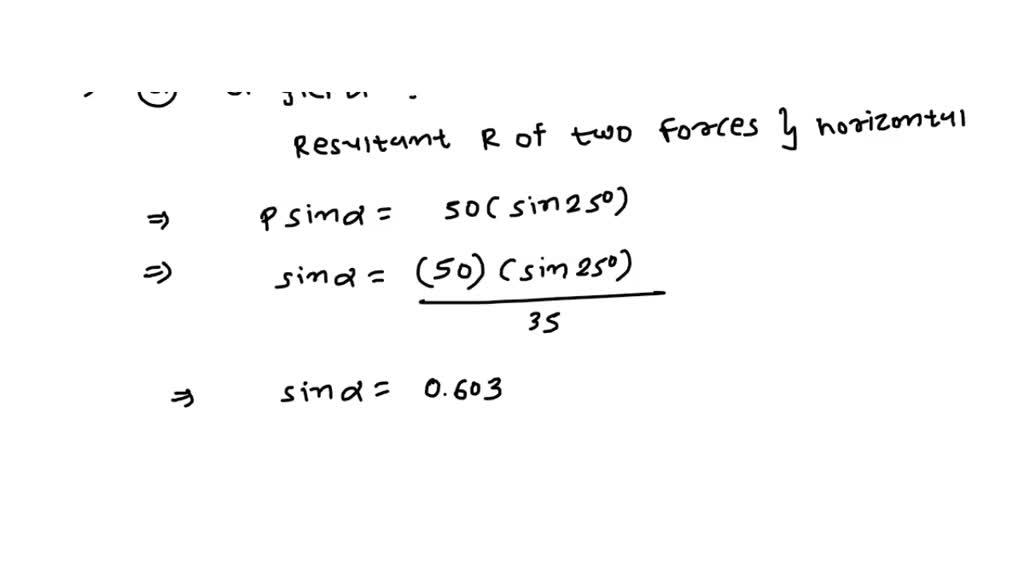 Resultant R of two forces } horizontal
⇒ P sinα = 50(sin25°)
⇒ sinα = (50)(sin25°)
35
⇒ sinα = 0.603